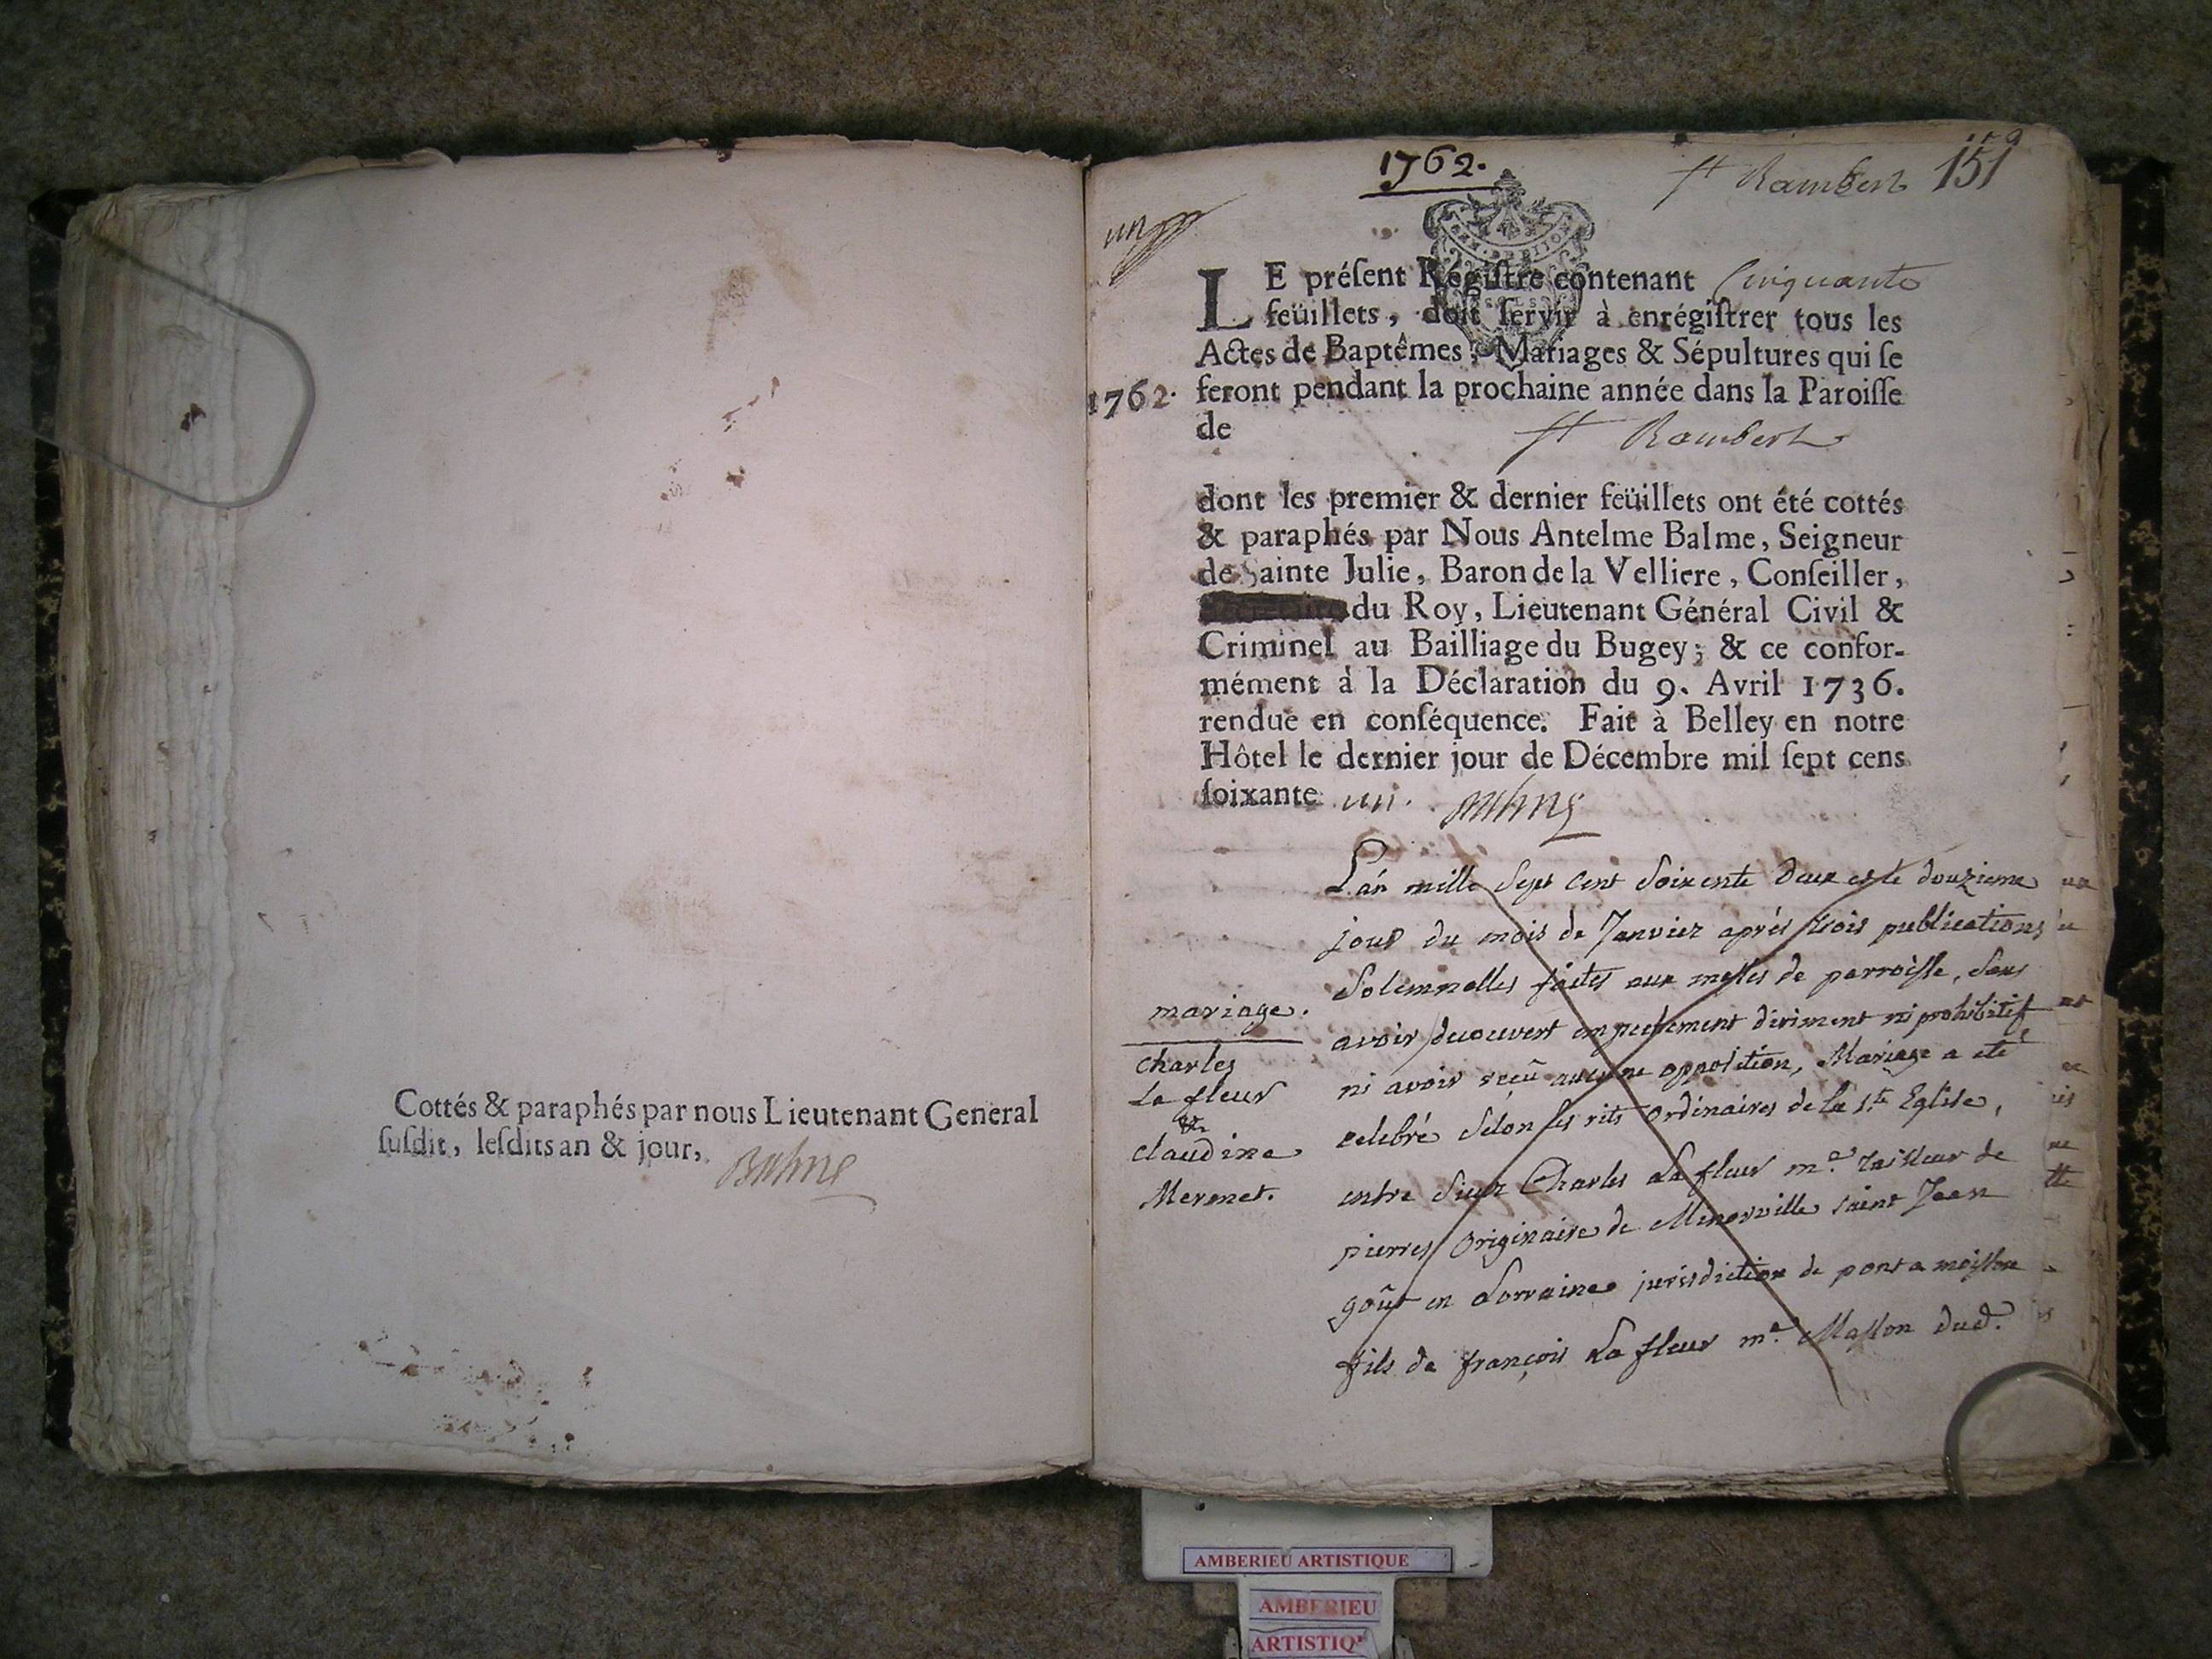 Cottés & paraphés par nous Lieutenant General
ſuſdit, leſdits an & jour,
Balme
1762.
St Rambert
151
un
LE préſent Régiſtre contenant Cinquante
feüillets, doit ſervir à enrégiſtrer tous les
Actes de Baptêmes, Mariages & Sépultures qui ſe
1762. feront pendant la prochaine année dans la Paroiſſe
de St Rambert
dont les premier & dernier feüillets ont été cottés
& paraphés par Nous Antelme Balme, Seigneur
de Sainte Julie, Baron de la Velliere, Conſeiller,
du Roy, Lieutenant Général Civil &
Criminel au Bailliage du Bugey; & ce confor-
mément à la Déclaration du 9. Avril 1736.
rendue en conſéquence. Fait à Belley en notre
Hôtel le dernier jour de Décembre mil ſept cens
ſoixante un. Balme
L'an mille Sept Cent Soixente deux et le douzieme
jour du mois de Janvier aprés trois publications
Solemnelles faites aux messes de parroisse, Sans
avoir decouvert empechement diriment ni prohibitif
ni avoir reçû aucune opposition, Mariage a eté
celebré Selon les rits ordinaires de la s.te Eglise,
entre Sieur Charles La fleur m.e tailleur de
pierres originaire de Minorville saint Jean
goût en Lorraine jurisdiction de pont a mousson
fils de françois La fleur m.e Masson dud.
mariage.
Charles
La fleur
&
Claudine
Mermet.
AMBERIEU ARTISTIQUE
AMBERIEU
ARTISTIQ